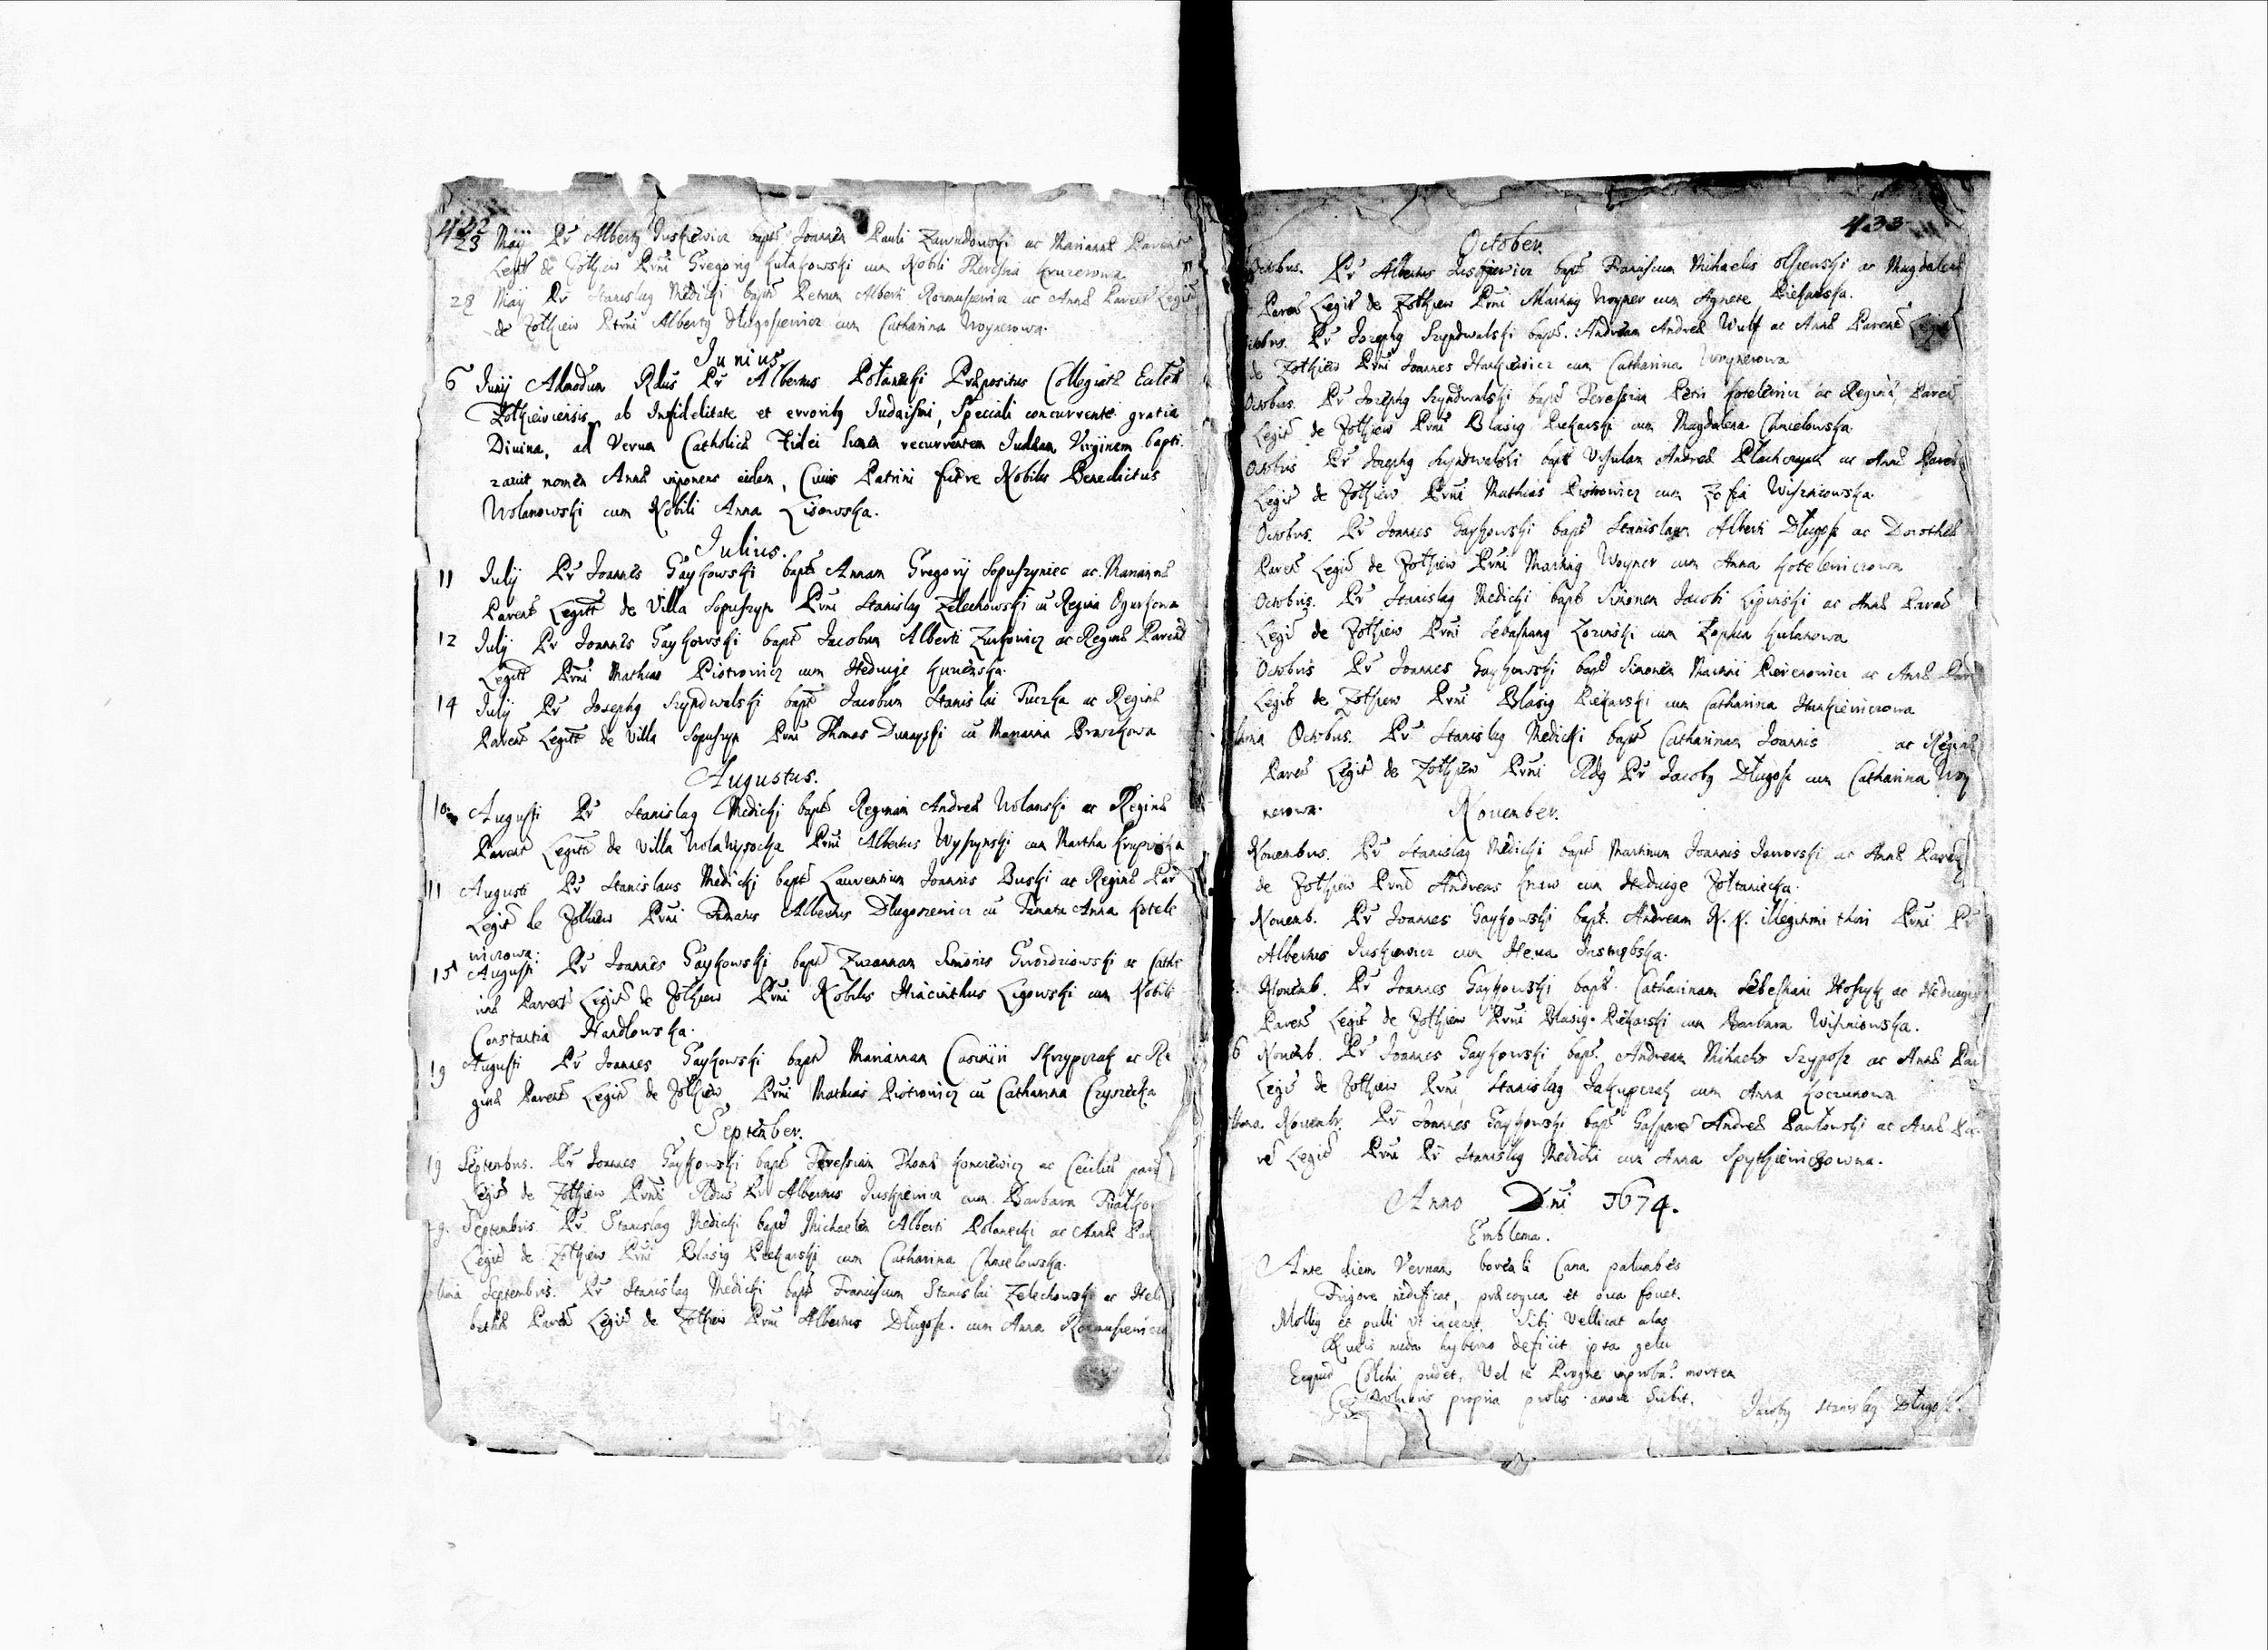 432
23 Maij Pr Alberty Juskiewicz bapt Joannem Pauli Zawadowski ac Marianæ Parent
Legit de Zołkiew Prni Gregorig Kułakowski cum Nobili Theressia Kruzerowa
28 Maij Pr Stanislag Medicki bapt Petrum Alberti Rozmusiewicz ac Annæ Parent Legit
de Zołkiew Prni Alberty Długosiewicz cum Catharina Woynerowa.
Junius.
6 Junij Admodum Rdus Pr Albertus Polanecki Præpositus Collegiatæ
Zołkieviensis, ab Infidelitate et erroribg Judaismi, speciali concurrente gratia
Divina, ad Verum Catholicæ Fidei lumen recurrentem Judæam Virginem bapti
zavit nomen Annæ imponens eidem, Cuius Patrini fuere Nobilis Benedictus
Wolanowski cum Nobili Anna Lisowska.
Julius.
11 July Pr Joannes Gaykowski bapt Annam Gregorij Sopuszyniec ac Mariannæ
Parent Legitt de Villa Sopuszyn Prni Stanislag Zelechowski cu Regina Ogurkowa
12 July Pr Joannes Gaykowski bapt Jacobum Alberti Zurkowicz ac Reginæ Parent
Legitt Prni Mathias Piotrowicz cum Hedwige
14 July Pr Josephg Szyndwalski bapt Jacobum Stanislai Tuczka ac Reginæ
Parent Legitt de Villa Sopuszyn Prni Thomas Dunayski cu Marianna Braszkowa
Augustus.
10 Augusti Pr Stanislag Medicki bapt Reginam Andreæ Wolanski ac Reginæ
Parent Legitt de Villa Wola Wysocka Prni Albertus Wyszynski cum Martha Krupinska
11 Augusti Pr Stanislaus Medicki bapt Laurentium Joannis Buski ac Reginæ Par
Legit de Zołkiew Prni Famatus Albertus Dlugoszewicz cu Famata Anna Kotele
wiczowa:
15 Augusti Pr Joannes Gaykowski bapt Zuzannam Simonis Gwozdziowski ac Catha
rinæ Parent Legit de Zołkiew Prni Nobilis Hiacinthus Ligowski cum Nobili
Constantia Handlowska.
19 Augusti Pr Joannes Gaykowski bapt Mariannam Casimiri Skrzypczak ac Re
ginæ Parent Legit de Zołkiew Prni Mathias Piotrowicz cu Catharina
September.
19 Septembris. Pr Joannes Gaykowski bapt Teressiam Thomæ ac Ceciliæ pare
Legit de Zołkiew Prni Rdus Pr Albertus Juskiewicz cum Barbara
Septembris. Pr Stanislag Medicki bapt Michaelem Alberti Polanecki ac Annæ Par
Legit de Zołkiew Prni Blasig Piekarski cum Catharina Chmielowska.
Septembris. Pr Stanislag Medicki bapt Franciscum Stanislai Zelechowski ac Heli
bethæ Parent Legit de Zołkiew Prni Albertus Długosz. cum Anna Rozmusiewicz
433
October.
Octobris. Pr Albertus Juskiewicz bapt Franciscum Michaelis Olszewski ac Magdalenæ
Parent Legit de Zołkiew Prni Marting Woyner cum Agnete Piekarska.
Pr Josephg Szyndwalski bapt. Andream Andreæ Wulf ac Annæ Parent Legit
de Zołkiew Prni Joannes Harkiewicz cum Catharina Woynerowa
Octobris. Pr Josephg Szyndwalski bapt Teressiam Petri Kotelewicz ac Reginæ Parent
Legit de Zołkiew Prni Blasig Piekarski cum Magdalena Chmielowska.
Octobris Pr Josephg Szyndwalski bapt Ursulam Andreæ ac Annæ Parent
Legit de Zołkiew Prni Mathias Piotrowicz cum Zofia Wiszniowska.
Octobris. Pr Joannes Gaykowski bapt Stanislaum Alberti Długosz ac Dorotheæ
Parent Legit de Zołkiew Prni Marting Woyner cum Anna Kotelewiczowa
Octobris. Pr Stanislag Medicki bapt Simonem Jacobi Lipinski ac Annæ Parent
Legit de Zołkiew Prni Sebastiang cum Zophia Kulanowa
Octobris Pr Joannes Gaykowski bapt Simonem Martini ac Annæ Par
Legit de Zołkiew Prni Blasig Piekarski cum Catharina Harkiewiczowa
Octobris. Pr Stanislag Medicki bapt Catharinam Joannis ac Reginæ
Parent Legit de Zołkiew Prni Rdg Pr Jacobg Długosz cum Catharina Woy
nerowa.
November.
Novembris. Pr Stanislag Medicki bapt Martinum Joannis Jaworski ac Annæ Parent
de Zołkiew Prni Andreas Knaw cum Hedwige Zołtaniecka.
Novemb. Pr Joannes Gaykowski bapt. Andream N. N. illegitimi thori Prni Pr
Albertus Juskiewicz cum Hewa
Novemb. Pr Joannes Gaykowski bapt. Catharinam Sebestiani ac Hedwigis
Parent Legit de Zołkiew Prni Blasig Piekarski cum Barbara Wiszniowska.
6 Novemb. Pr Joannes Gaykowski bapt. Andream Michaelis ac Annæ Par
Legit de Zołkiew Prni, Stanislag Jakupczak cum Anna Koczunowa
Novembr. Pr Joannes Gaykowski bapt Gasparem Andreæ Pawłowski ac Annæ Pa
re Legit Prni Pr Stanislag Medicki cum Anna
Anno Dni 1674.
Emblema.
Ante diem Vernam boreali Cana palumbes
Frigore nidificat, præcoqua et ova fovet.
Mollig et pulli ut iaceant, sibi Vellicat alas
Queis nuda hyberno deficit ipsa gelu
Ecquid Colchi pudet, Vel te Progne improba? mortem
propria prolis amore subit.
Jacobg Stanislag Długosz.